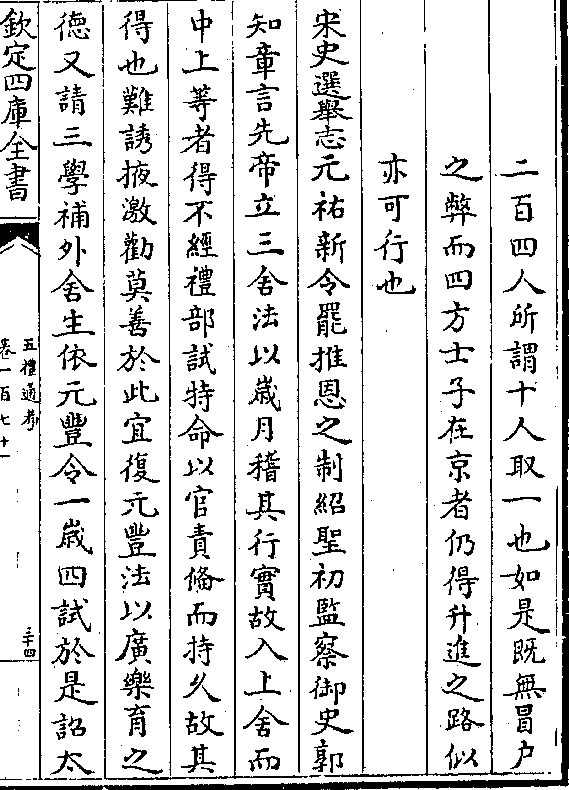 二百四人所謂十人取一也如是既無冒户
之弊而四方士子在京者仍得升進之路似
亦可行也
宋史選舉志元祐新令罷推恩之制紹聖初監察御史郭
知章言先帝立三舍法以嵗月稽其行實故入上舍而
中上等者得不經禮部試特命以官責備而持久故其
得也難誘掖激勸莫善於此宜復元豐法以廣樂育之
德又請三學補外舍生依元豐令一嵗四試於是詔太
欽定四庫全書
五禮通考
卷一百七十一
三十四